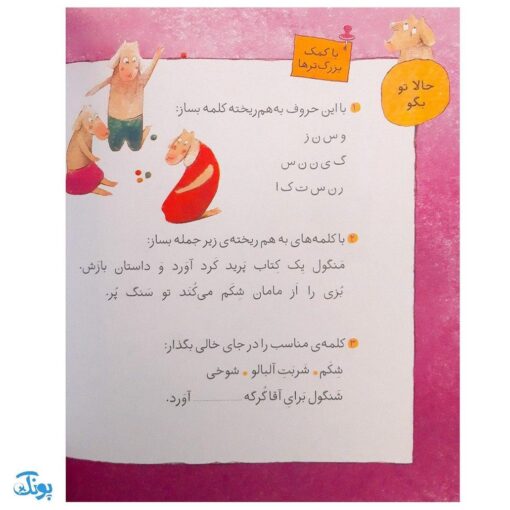 با کمک
بزرگ‌ترها
حالا تو
بگو
۱ با این حروف به‌هم‌ریخته کلمه بساز:
و س ن ز
گ ی ن ن س
ر ن س ت ک ا
۲ با کلمه‌های به هم ریخته‌ی زیر جمله بساز:
مَنگول یِک کِتاب پَرید کَرد آوَرد وَ داستان بازَش.
بُزی را اَز مامان شِکَم می‌کُنَد تو سَنگ پُر.
۳ کلمه‌ی مناسب را در جای خالی بگذار:
شِکَم • شَربَتِ آلبالو • شوخی
شَنگول بَرایِ آقا گُرگه ............ آوَرد.
پونک